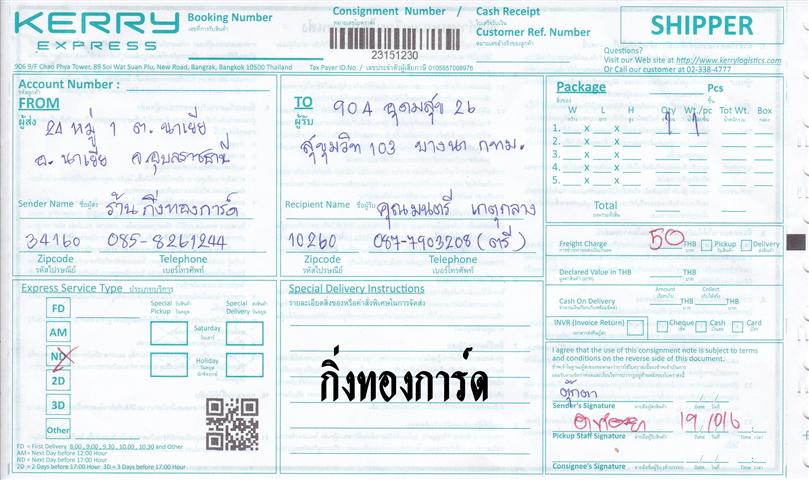 KERRY
EXPRESS
Booking Number
เลขที่การรับสินค้า
Consignment Number /
หมายเลขใบตราส่ง
23151230
Cash Receipt
ใบเสร็จรับเงิน
Customer Ref. Number
หมายเลขอ้างอิงของลูกค้า
SHIPPER
Questions?
Visit our Web site at http://www.kerrylogistics.com
Or Call our customer at 02-338-4777
906 9/F Chao Phya Tower, 89 Soi Wat Suan Plu, New Road, Bangrak, Bangkok 10500 Thailand
Tax Payer ID.No. / เลขประจำตัวผู้เสียภาษี 0105557008976
Account Number :
รหัสลูกค้า
FROM
ผู้ส่ง
24 หมู่ 1 ต. นาเยีย
อ. นาเยีย จ.อุบลราชธานี
Sender Name ชื่อผู้ส่ง ร้าน กิ่งทองการ์ด
34160 085-8261244
Zipcode Telephone
รหัสไปรษณีย์ เบอร์โทรศัพท์
TO 904 อุดมสุข 26
ผู้รับ
สุขุมวิท 103 บางนา กทม.
Recipient Name ชื่อผู้รับ คุณมนตรี เกตุกลาง
10260 087-7903208 (ตรี)
Zipcode Telephone
รหัสไปรษณีย์ เบอร์โทรศัพท์
Package Pcs
สิ่งของ ชิ้น
W L H Qty Wt./pc Tot Wt. Box
กว้าง ยาว สูง จำนวน น้ำหนักรวม กล่อง
1. x x 1 1
2. x x
3. x x
4. x x
5. x x
Total
ยอดรวมทั้งสิ้น
Freight Charge 50 THB Pickup Delivery
Declared Value in THB THB
Amount Collect
Cash On Delivery THB THB
INVR (Invoice Return) Cheque Cash Card
Express Service Type ประเภทบริการ
FD
AM
ND
2D
3D
Other
Special Pickup วันรับสินค้า วันหยุด
Special Delivery วันส่งสินค้า วันหยุด
Saturday
วันเสาร์
Holiday
วันหยุด
FD = First Delivery 8.00 , 9.00 , 9.30 , 10.00 , 10.30 and Other
AM = Next Day before 12:00 Hour
ND = Next Day before 17:00 Hour
2D = 2 Days before 17:00 Hour 3D = 3 Days before 17:00 Hour
Special Delivery Instructions
รายละเอียดสิ่งของหรือคำสั่งพิเศษในการจัดส่ง
กิ่งทองการ์ด
I agree that the use of this consignment note is subject to terms
and conditions on the reverse side of this document.
ตุ๊กตา
Sender's Signature ลายมือชื่อผู้ส่งสินค้า Date วันที่
19/01/6
Pickup Staff Signature ลายมือชื่อผู้รับสินค้า Date วันที่ Time เวลา
Consignee's Signature Date วันที่ Time เวลา